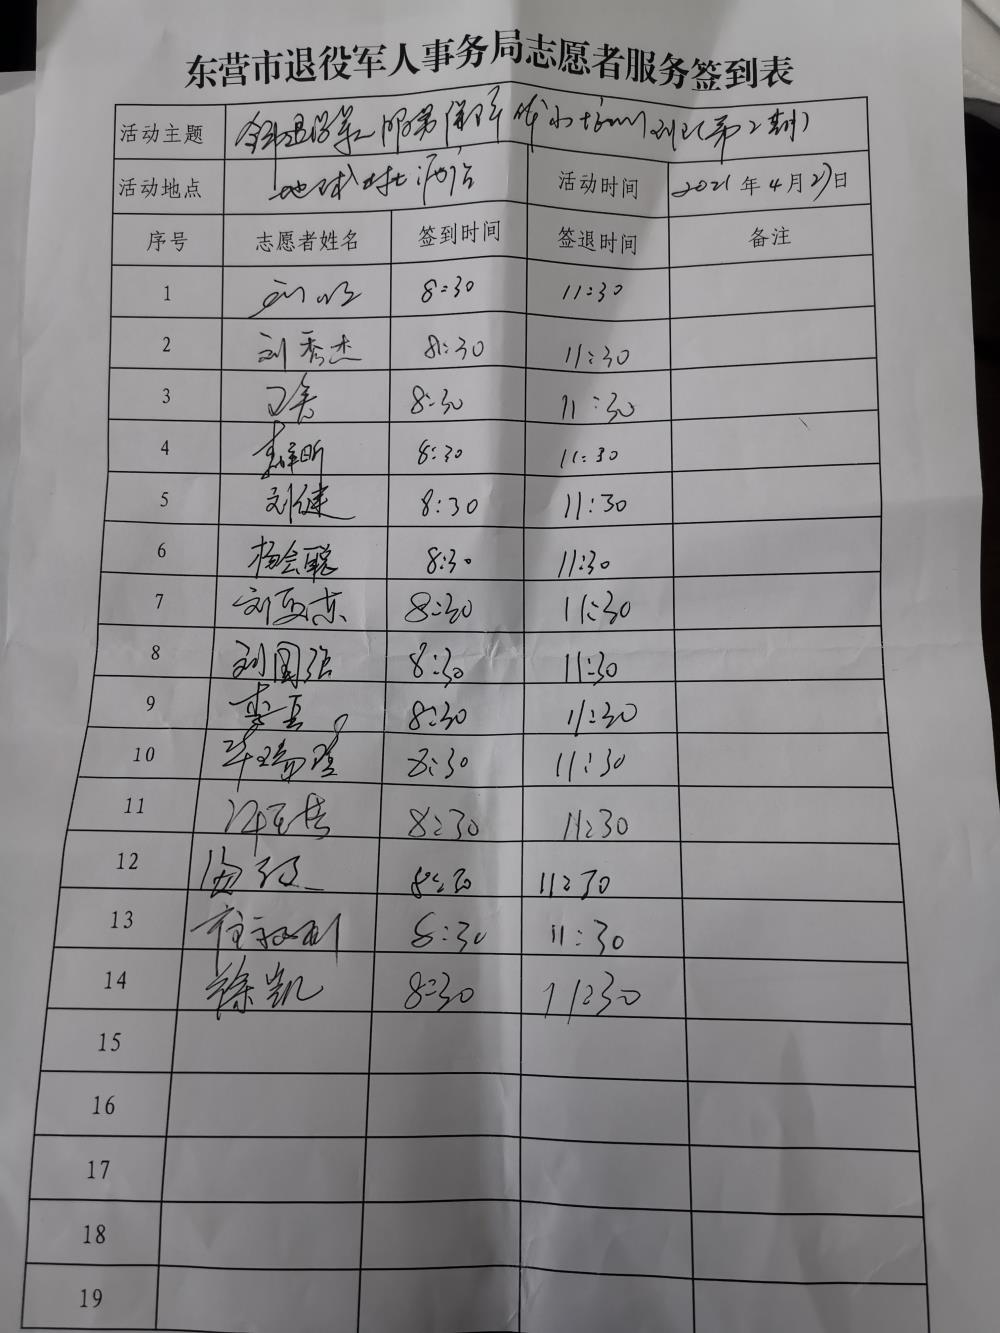 东营市退役军人事务局志愿者服务签到表
活动主题 全市退役军人服务保障体系培训班(第2期)
活动地点 地球村酒店 活动时间 2021年4月27日
序号 志愿者姓名 签到时间 签退时间 备注
1 8:30 11:30
2 刘秀杰 8:30 11:30
3 8:30 11:30
4 8:30 11:30
5 刘健 8:30 11:30
6 杨会聪 8:30 11:30
7 8:30 11:30
8 刘国强 8:30 11:30
9 8:30 11:30
10 8:30 11:30
11 8:30 11:30
12 8:30 11:30
13 8:30 11:30
14 徐凯 8:30 11:30
15
16
17
18
19